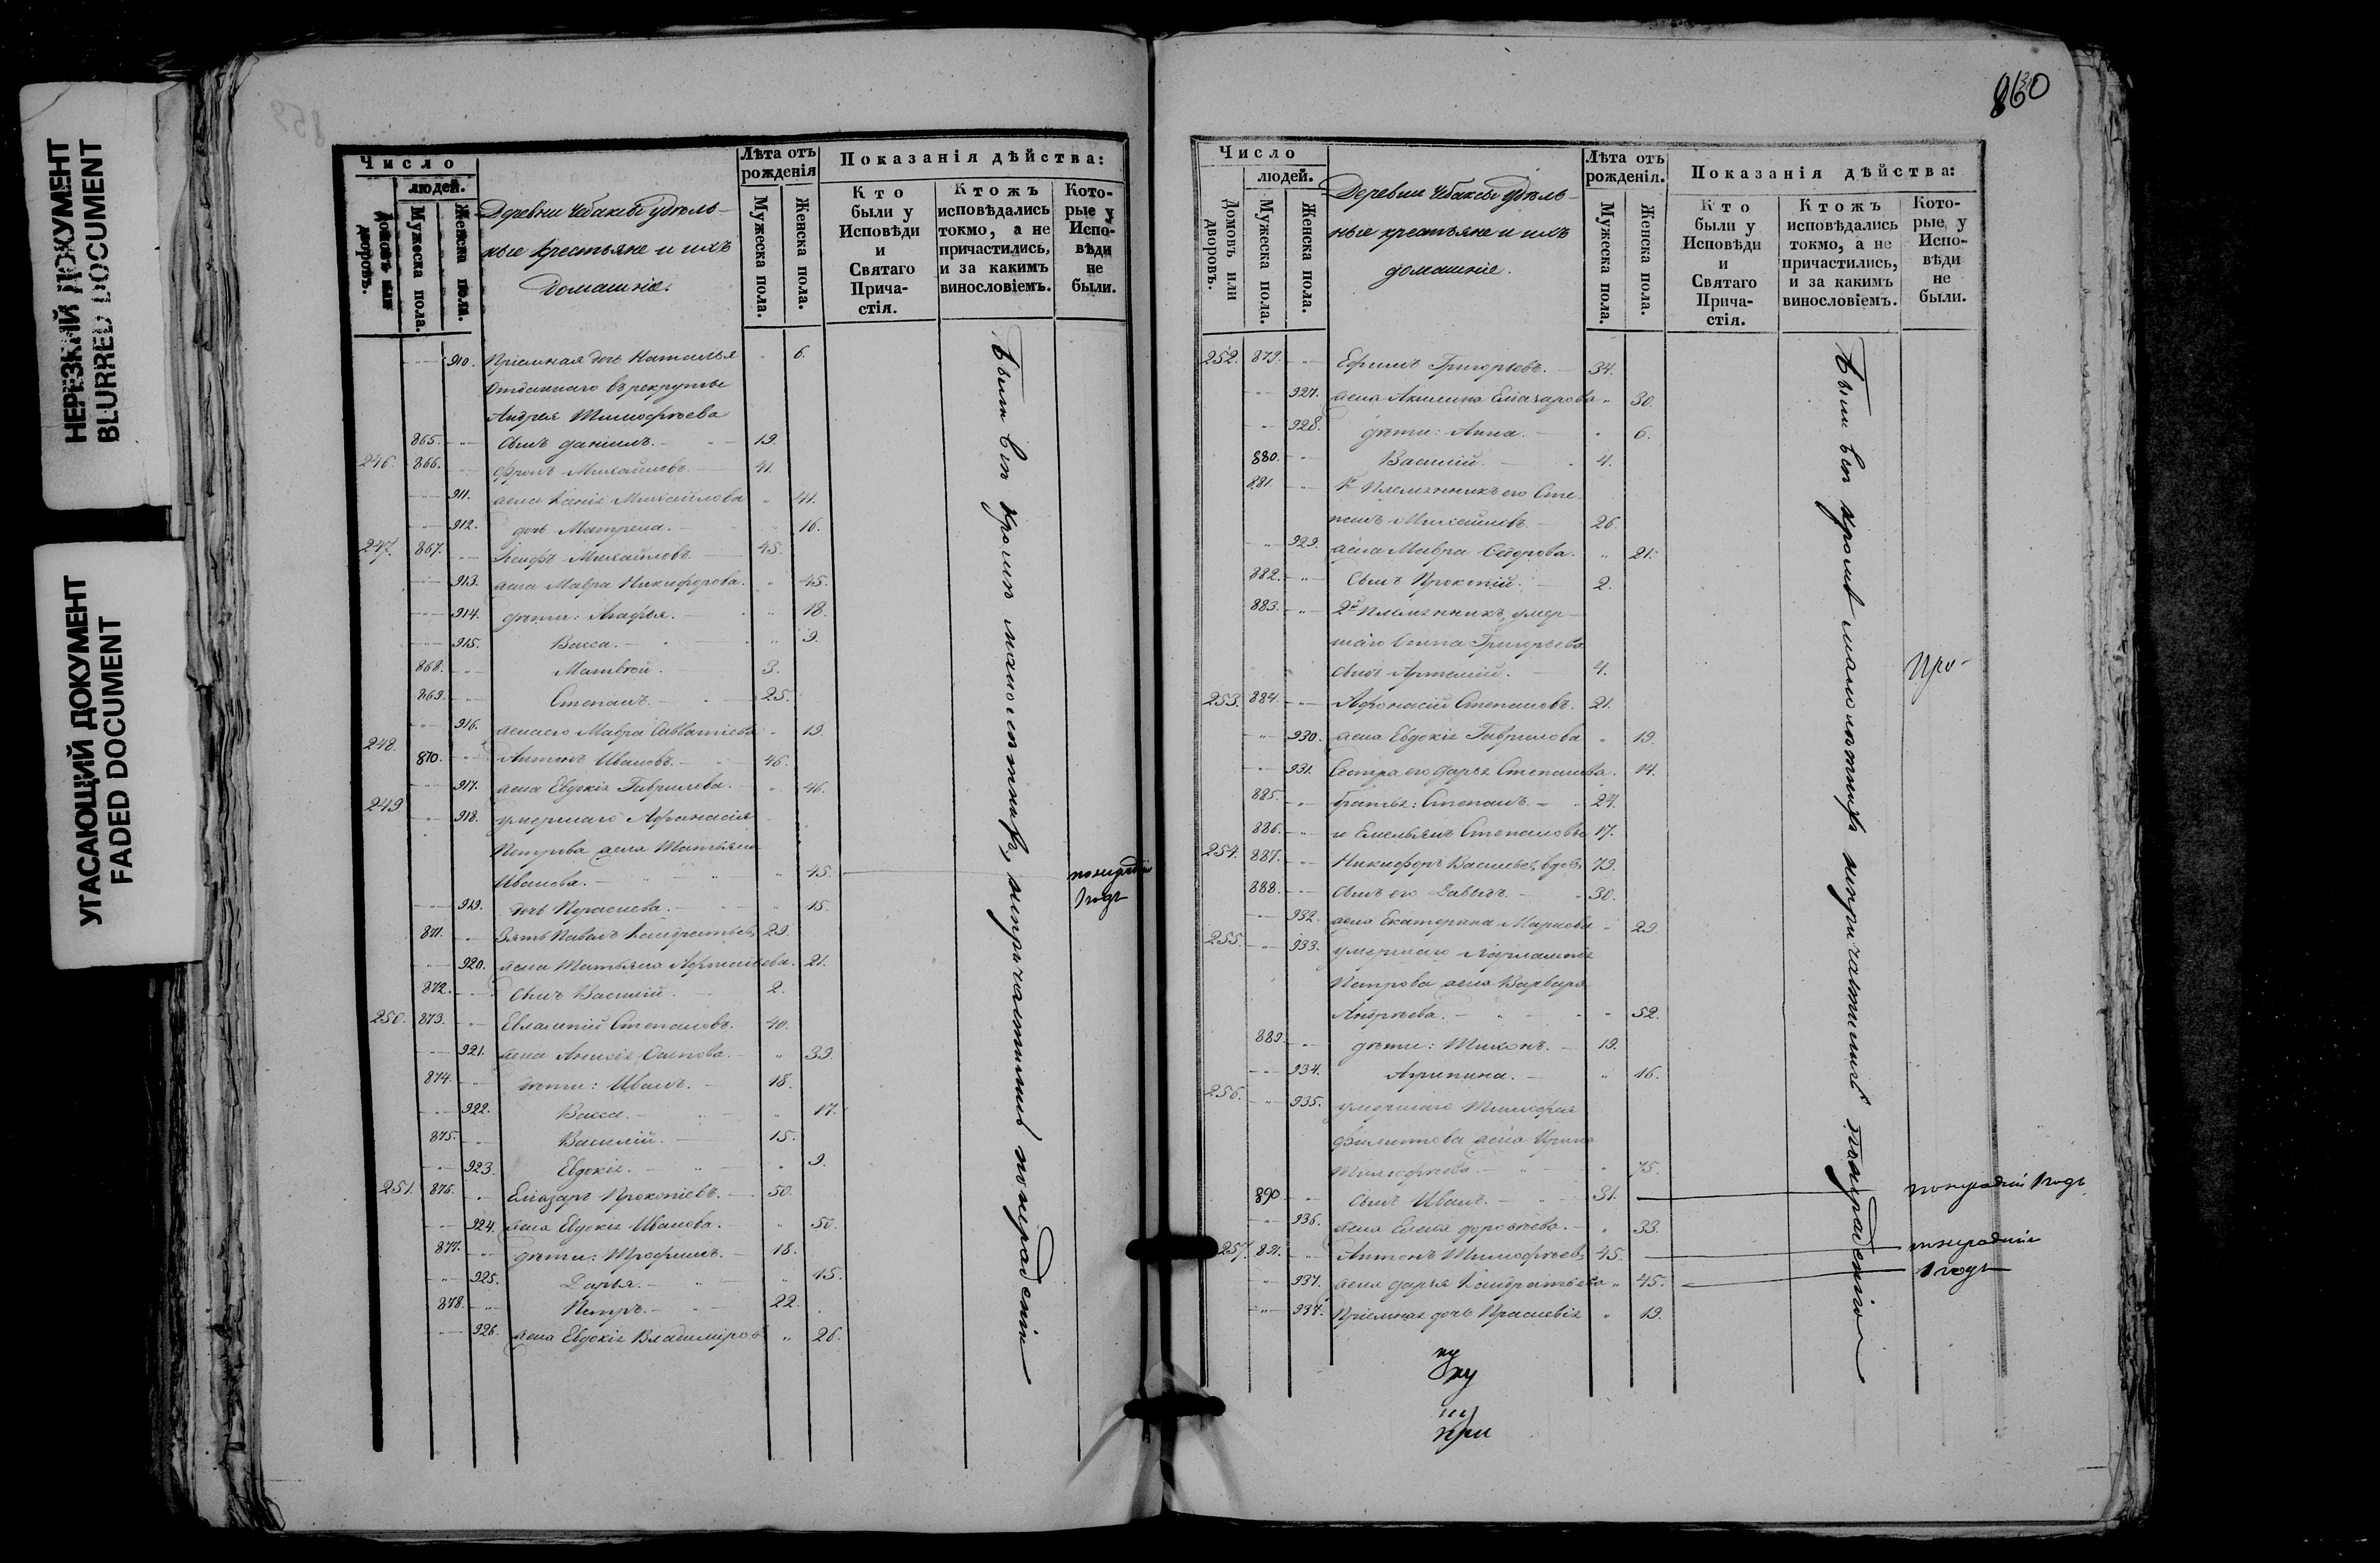 НЕРЕЗКИЙ ДОКУМЕНТ
BLURRED DOCUMENT
УГАСАЮЩИЙ ДОКУМЕНТ
FADED DOCUMENT
Число
людей.
Домовъ или дворовъ.
Мужеска пола.
Женска пола.
Деревни Чебаксы удѣль-
ные крестьяне и ихъ
домашніе.
Лѣта отъ
рожденія
Мужеска пола.
Женска пола.
Показанія дѣйства:
Кто
были у
Исповѣди
и
Святаго
Прича-
стія.
Ктожъ
исповѣдались
токмо, а не
причастились,
и за какимъ
винословіемъ.
Кото-
рые у
Испо-
вѣди
не
были.
910. Пріемная дочь Наталья 6.
Отданнаго въ рекруты
Андрея Тимофѣева
865. сынъ Даніилъ. 19.
246. 866. Фролъ Михайловъ. 41.
911. жена Ксенія Михайлова 41.
912. дочь Матрена. 16.
247. 867. Іосифъ Михайловъ. 45.
913. жена Мавра Никифорова. 45.
914. дѣти: Агафья. 18.
915. Васса. 9.
868. Матвѣй. 3.
869. Степанъ. 25.
916. жена его Мавра Савватіева 19.
248. 870. Антонъ Ивановъ. 46.
917. жена Евдокія Гаврилова. 46.
249 918. умершаго Афанасія
Петрова жена Татьяна
Иванова. 45. по нерадѣнію
1 годъ
919. дочь Параскева. 15.
871. Зять Павелъ Кондратьевъ 29.
920. жена Татьяна Афанасьева. 21.
872. сынъ Василій. 2.
250. 873. Евлампій Степановъ. 40.
921. жена Анисія Осипова. 39.
874. дѣти: Иванъ. 18.
922. Васса. 17.
875. Василій. 15.
923. Евдокія. 9.
251. 876. Еліазаръ Прокопіевъ. 50.
924. жена Евдокія Иванова. 50.
877. дѣти: Трофимъ. 18.
925. Дарья. 15.
878. Петръ. 22.
926. жена Евдокія Владимірова 26.
Были всѣ кромѣ малолѣтнихъ, непричастились по нерадѣнію
860
Число
людей.
Домовъ или дворовъ.
Мужеска пола.
Женска пола.
Деревни Чебаксы удѣль-
ные крестьяне и ихъ
домашніе.
Лѣта отъ
рожденія.
Мужеска пола.
Женска пола.
Показанія дѣйства:
Кто
были у
Исповѣди
и
Святаго
Прича-
стія.
Ктожъ
исповѣдались
токмо, а не
причастились,
и за какимъ
винословіемъ.
Кото-
рые, у
Испо-
вѣди
не
были.
252. 879. Ефимъ Григорьевъ. 34.
927. жена Акилина Еліазарова 30.
928. дѣти: Анна. 6.
880. Василій. 4.
881. 1й Племянникъ его Сте-
панъ Михайловъ 26.
929. жена Мавра Сидорова. 21.
882. сынъ Прокопій. 2.
883. 2й племянникъ, умер-
шаго Осипа Григорьева
сынъ Артемій. 4.
253. 884. Афонасій Степановъ. 21.
930. жена Евдокія Гаврилова 19.
931. Сестра его Дарья Степанова. 14.
885. братья: Степанъ. 24.
886. и Емельянъ Степановы 17.
254. 887. Никифоръ Васильевъ, вдовъ 79.
888. сынъ его Давыдъ. 30.
932. жена Екатерина Маркова 29.
255. 933. умершаго
Петрова жена Варвара
Андреева. 52.
889 дѣти: Тихонъ. 19.
934. Агрипина. 16.
256. 935. умершаго Тимофея
Филиппова жена Ирина
Тимофѣева. 75.
890 сынъ Иванъ. 31. по нерадѣнію 1 годъ
936. жена Елена Дорофѣева. 33.
257. 891. Антонъ Тимофѣевъ 45. по нерадѣнію
937. жена Дарья Кондратьева 45. 1 годъ
937. Пріемная дочь Праскевія 19.
Были всѣ кромѣ малолѣтнихъ непричастились по нерадѣнію
при